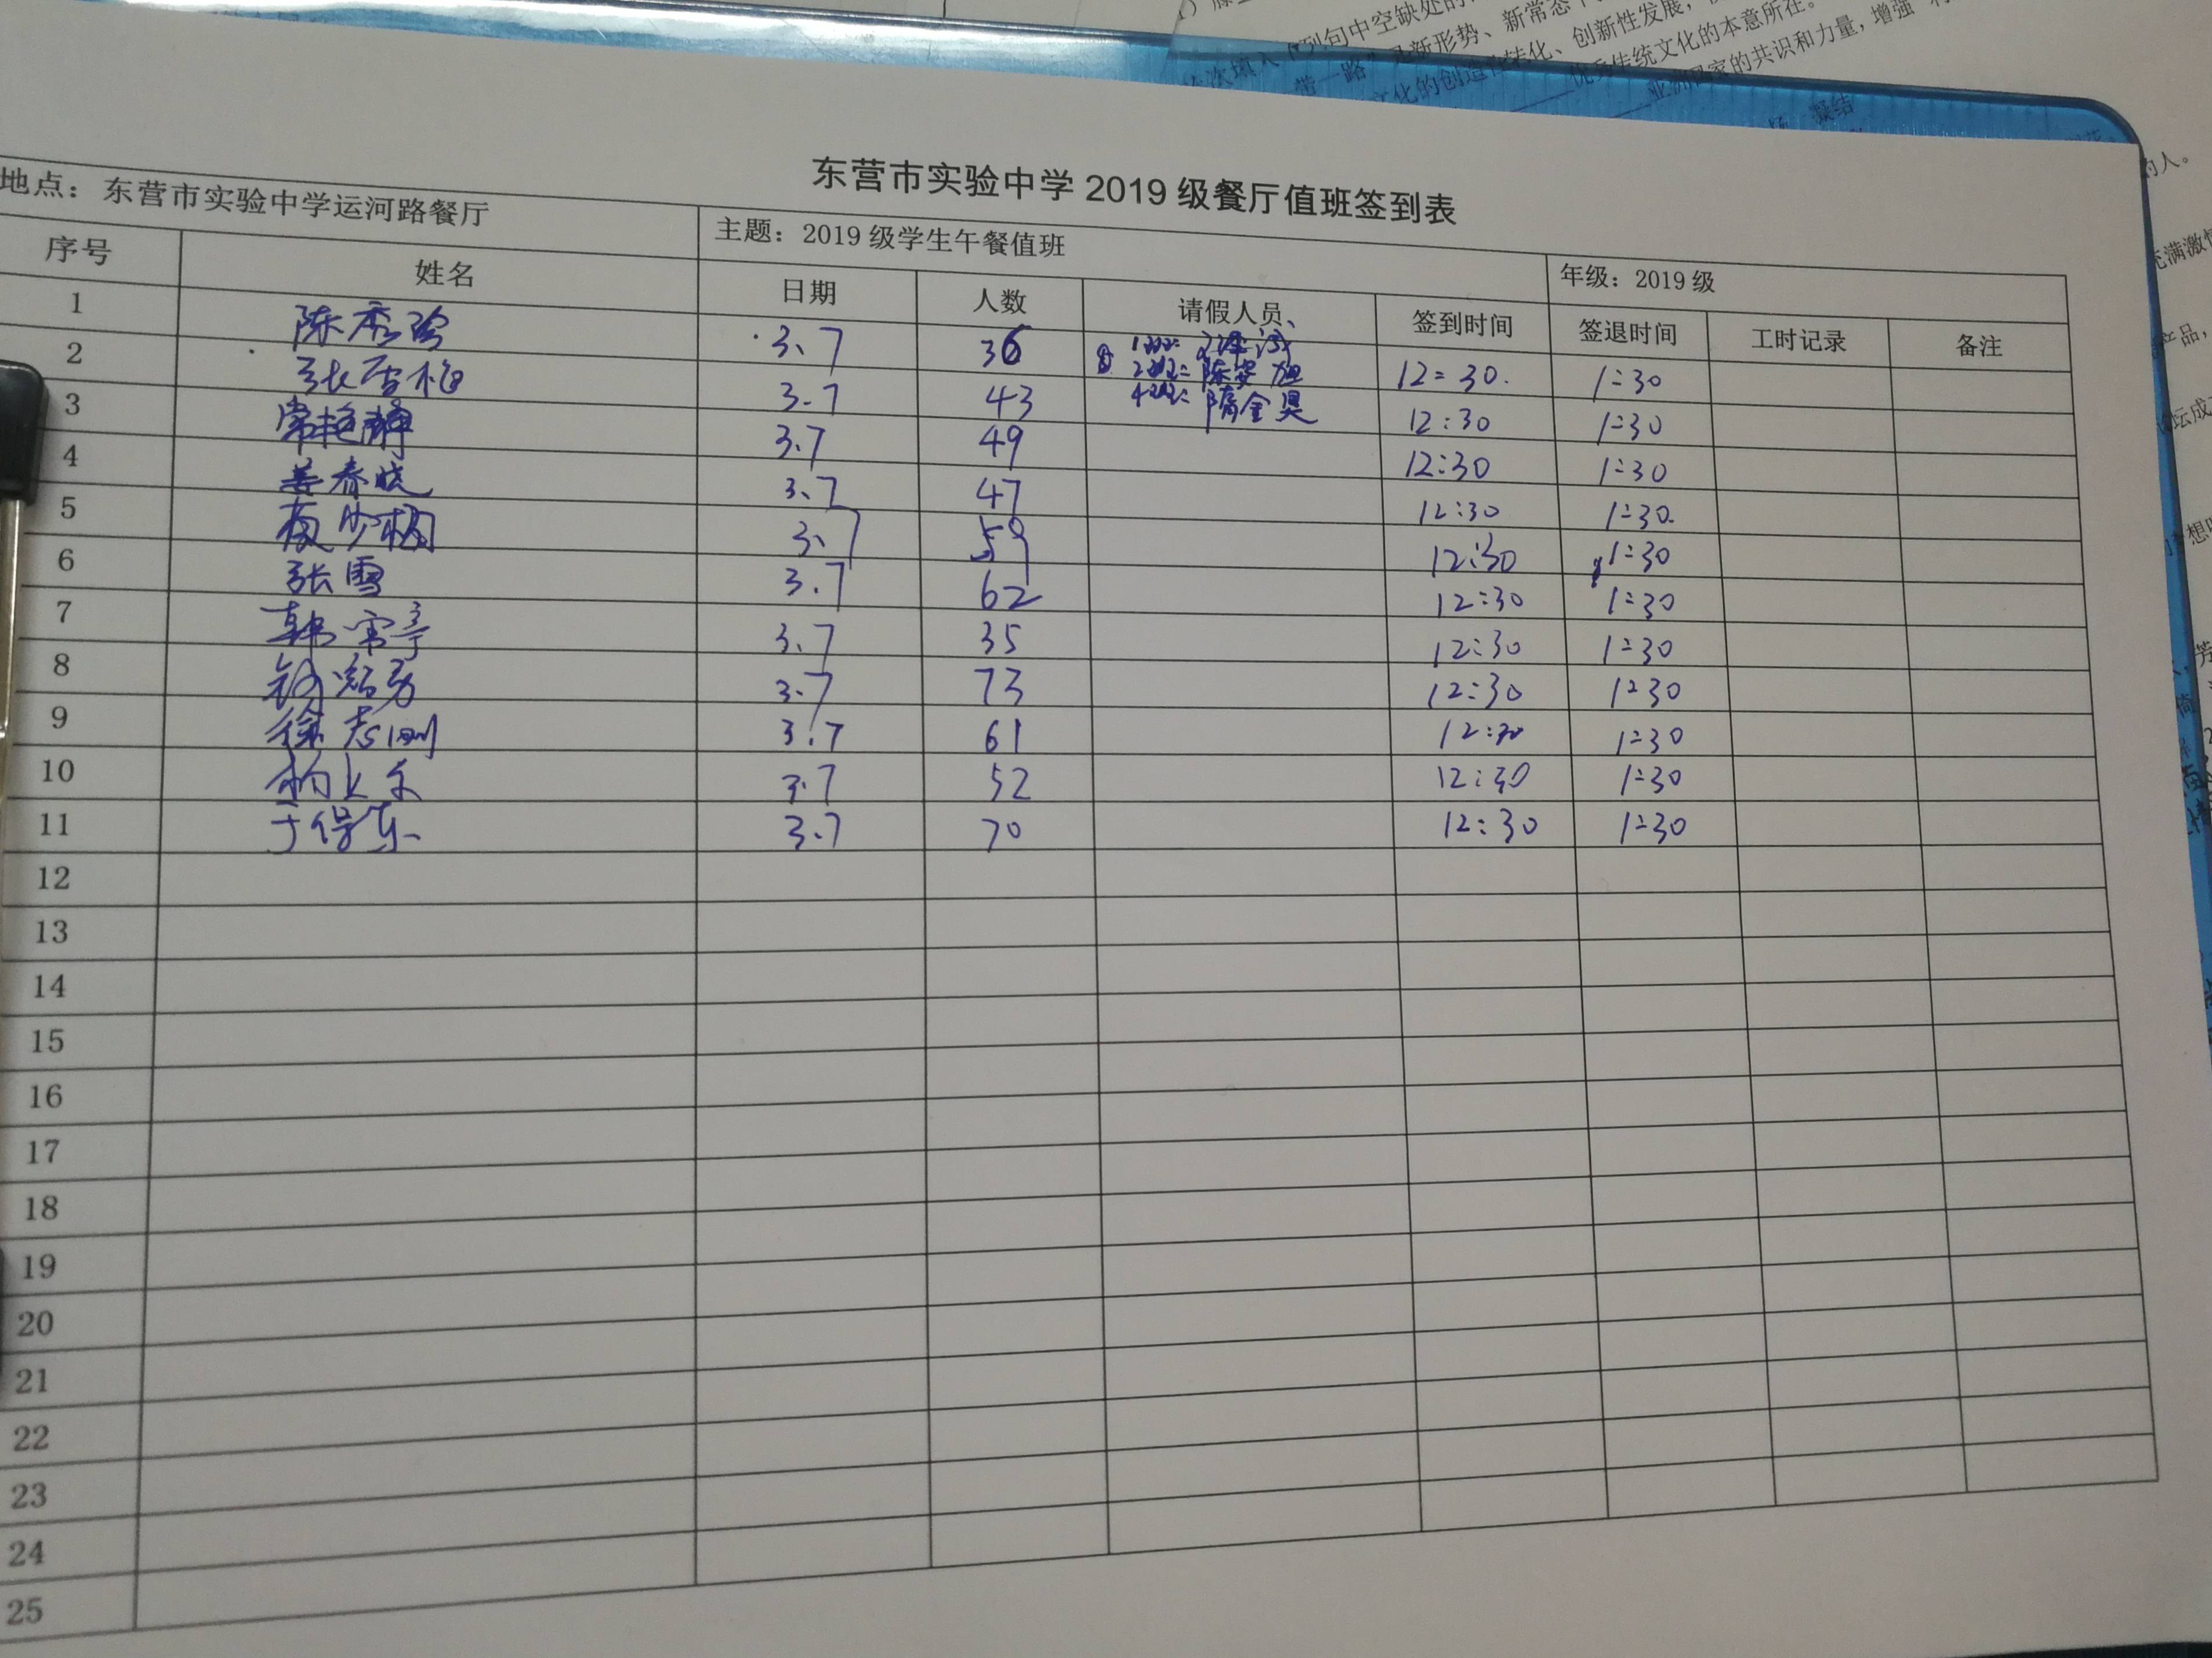 列句中空缺处的
新形势、新常态下
文化的创造性转化、创新性发展,
优秀传统文化的本意所在。
亚洲国家的共识和力量,增强
凝结
的人。
充满激情
产品,
坛成
东营市实验中学 2019 级餐厅值班签到表
地点:东营市实验中学运河路餐厅 主题:2019 级学生午餐值班 年级:2019 级
序号 姓名 日期 人数 请假人员、 签到时间 签退时间 工时记录 备注
1 陈秀玲 3.7 36 12:30. 1:30
2 张雪梅 3.7 43 隋金昊 12:30 1:30
3 常艳静 3.7 49 12:30 1:30
4 姜春晓 3.7 47 12:30 1:30.
5 3.7 59 12:30 1:30
6 张雪 3.7 62 12:30 1:30
7 韩常亭 3.7 35 12:30 1:30
8 3.7 73 12:30 1:30
9 徐志刚 3.7 61 12:30 1:30
10 3.7 52 12:30 1:30
11 于保东 3.7 70 12:30 1:30
12
13
14
15
16
17
18
19
20
21
22
23
24
25